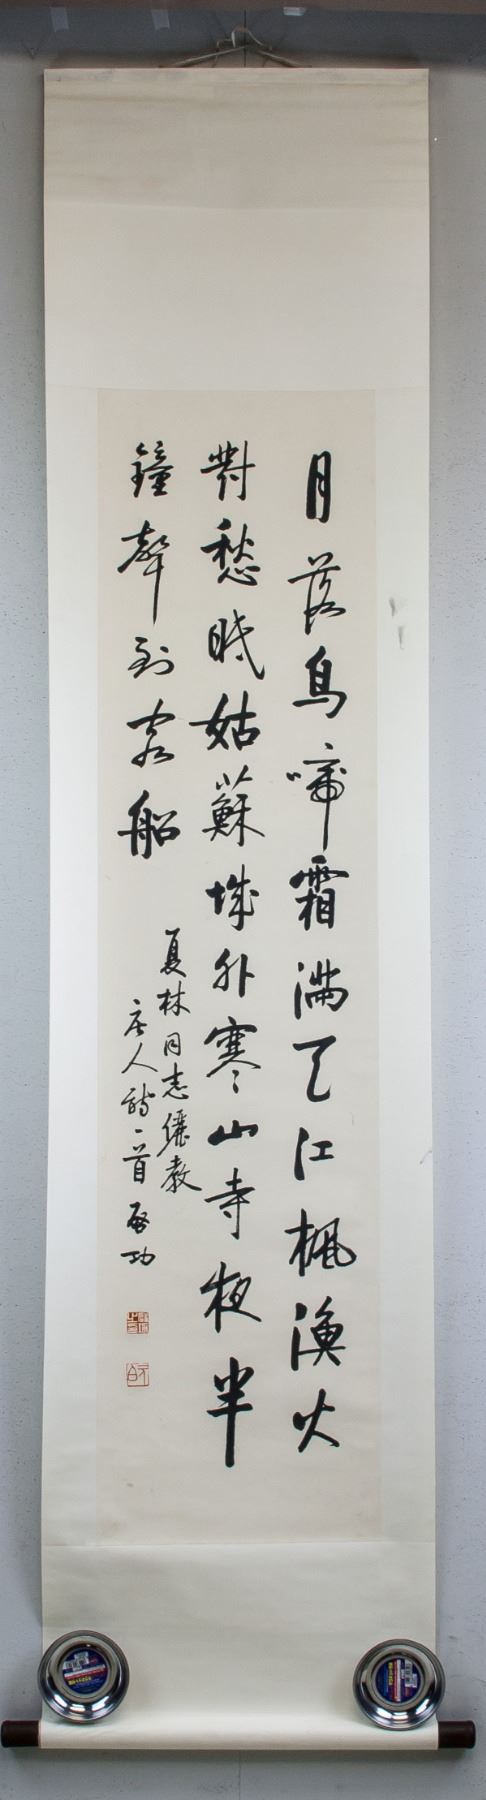 月落烏啼霜滿天江楓漁火
對愁眠姑蘇城外寒山寺夜半
鐘聲到客船
夏林同志儷教
唐人詩一首 啟功